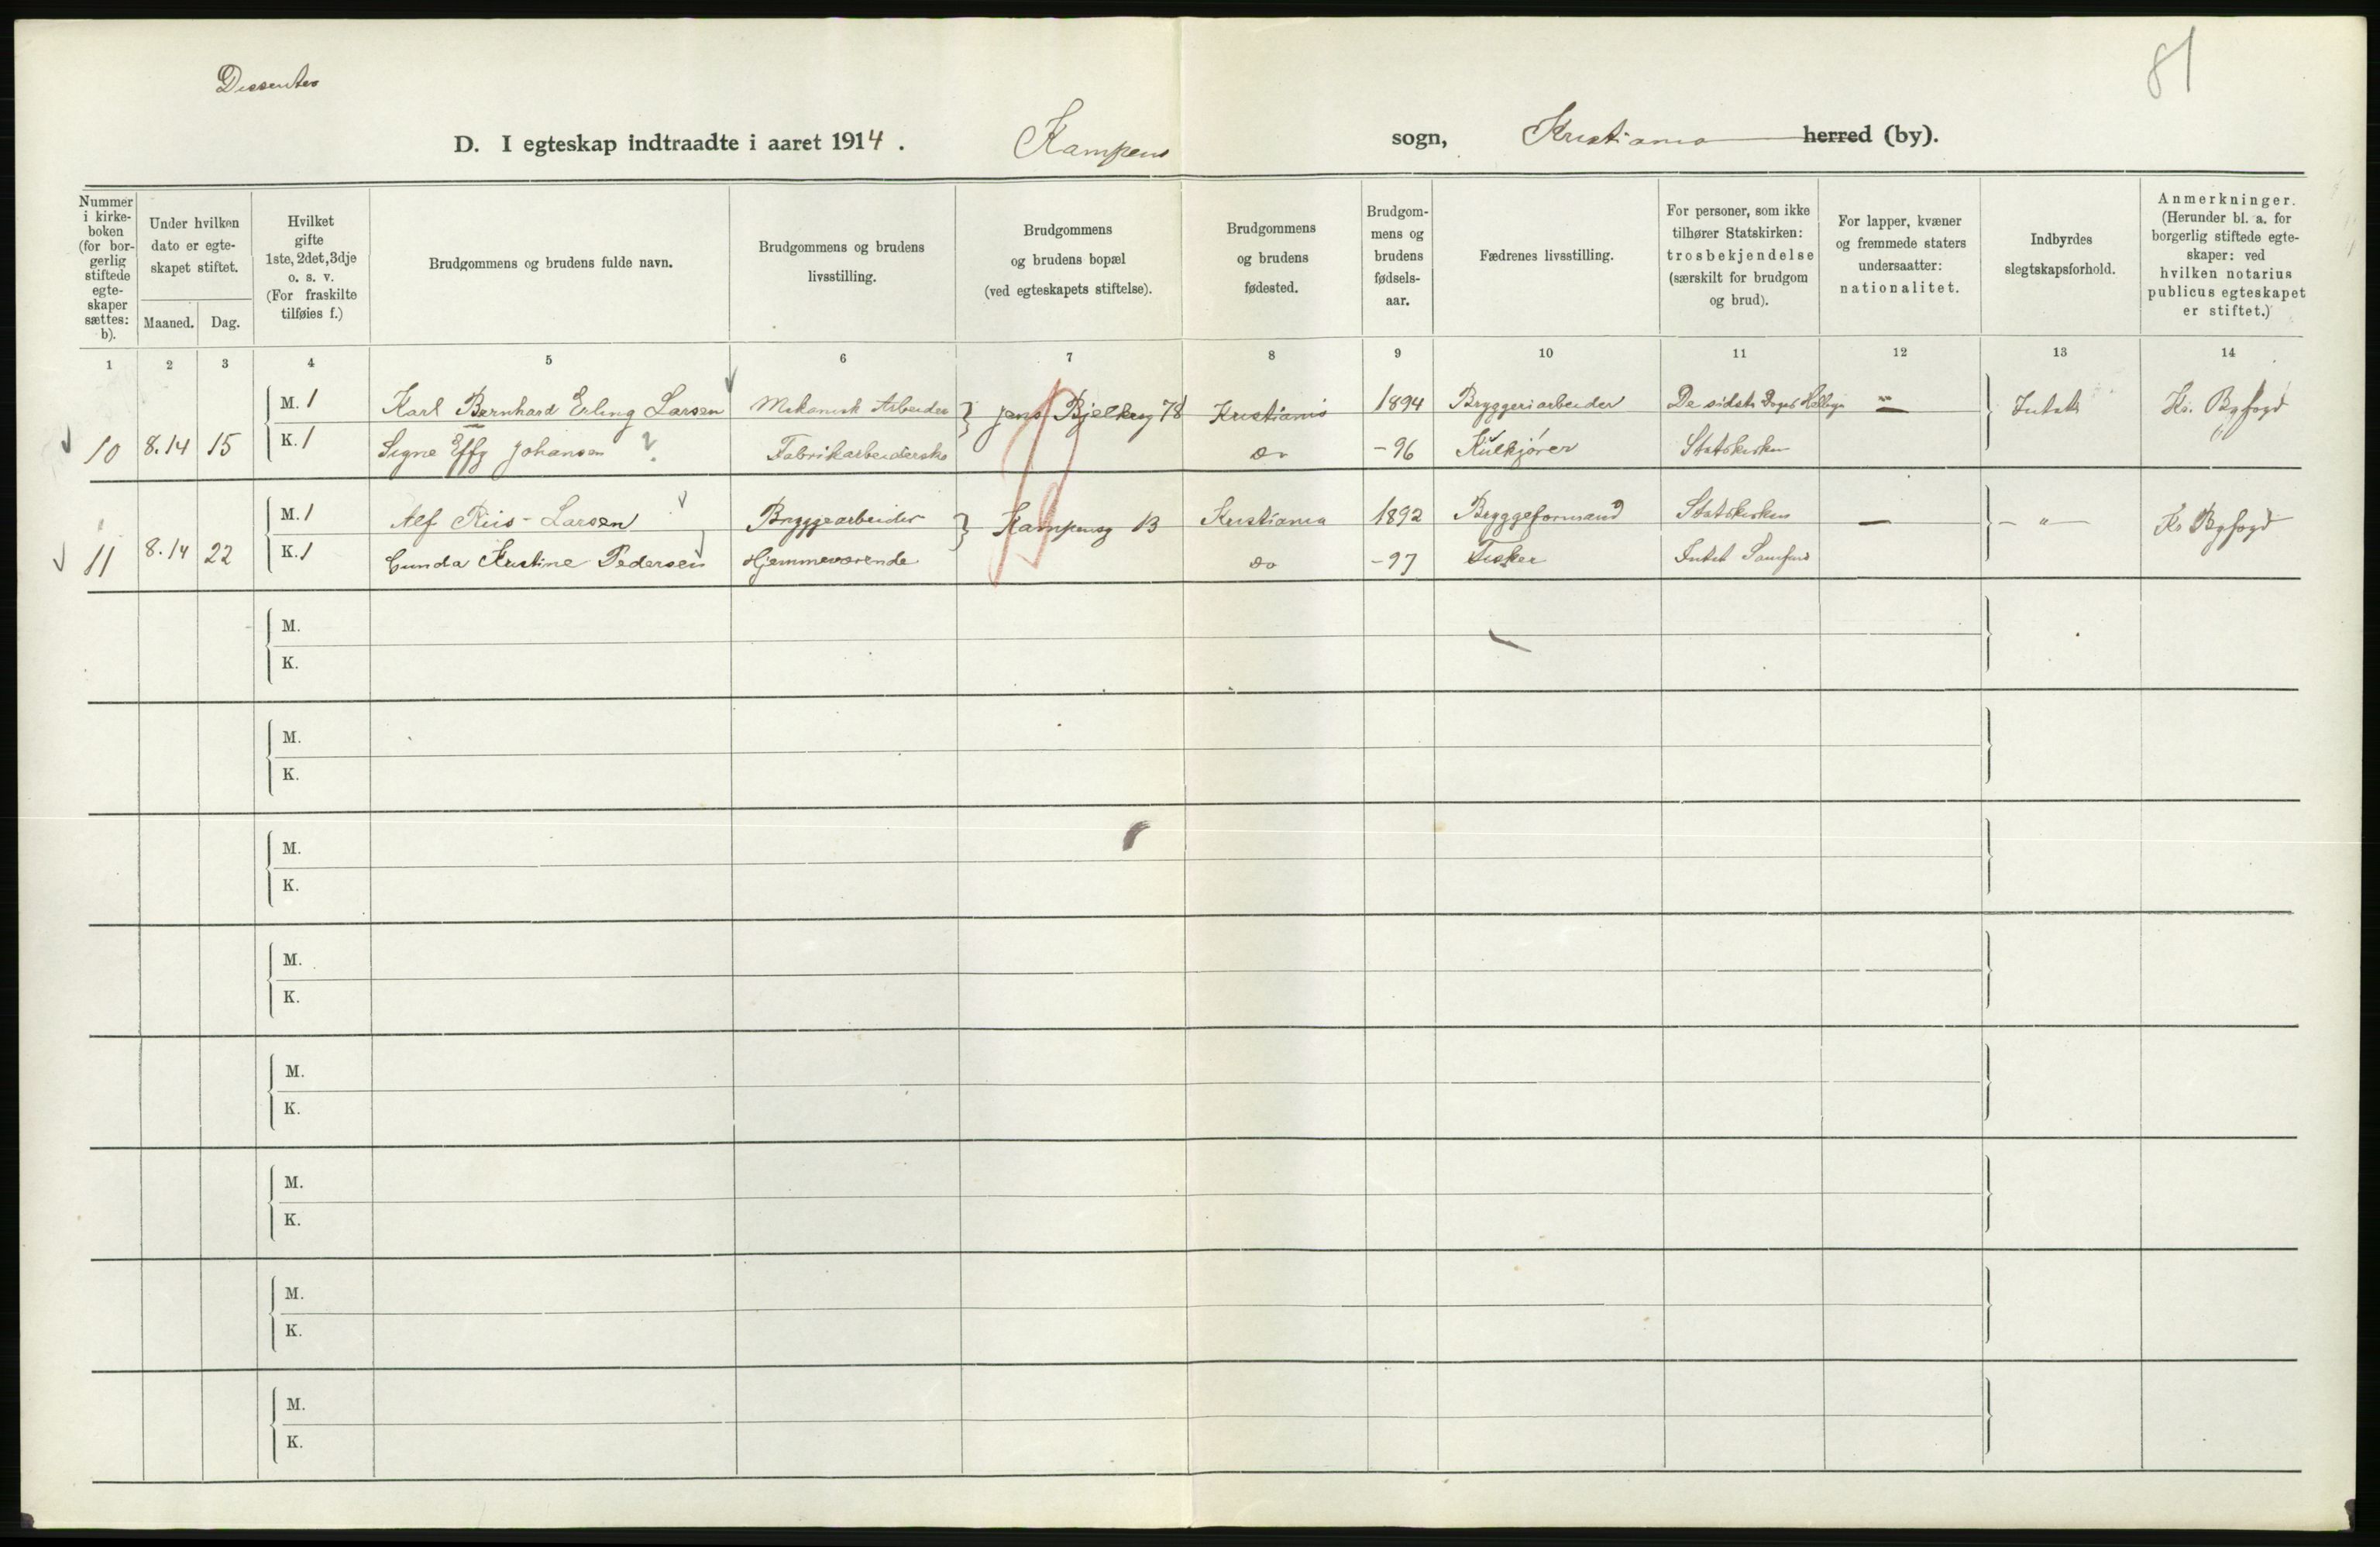 81
Dissenter
D. I egteskap indtraadte i aaret 1914. Kampens sogn, Kristiania herred (by).
Nummer i kirke-boken (for bor-gerlig stiftede egte-skaper sættes: b).
Under hvilken dato er egte-skapet stiftet.
Maaned. Dag.
Hvilket gifte 1ste, 2det, 3dje o. s. v. (For fraskilte tilføies f.)
Brudgommens og brudens fulde navn.
Brudgommens og brudens livsstilling.
Brudgommens og brudens bopæl (ved egteskapets stiftelse).
Brudgommens og brudens fødested.
Brudgom-mens og brudens fødsels-aar.
Fædrenes livsstilling.
For personer, som ikke tilhører Statskirken: trosbekjendelse (særskilt for brudgom og brud).
For lapper, kvæner og fremmede staters undersaatter: nationalitet.
Indbyrdes slegtskapsforhold.
Anmerkninger. (Herunder bl. a. for borgerlig stiftede egte-skaper: ved hvilken notarius publicus egteskapet er stiftet.)
1 2 3 4 5 6 7 8 9 10 11 12 13 14
M. 1 Karl Bernhard Erling Larsen Mekanisk Arbeider } Jens Bjelkesg 78 Kristiania 1894 Bryggeriarbeider De sidste Dages Hellige — Intet Kr. Byfogd
10 8.14 15 K. 1 Signe Effy Johansen ? Fabrikarbeiderske do - 96 Kulkjører Statskirken
M. 1 Alf Riis-Larsen Bryggearbeider } Kampensg 13 Kristiania 1892 Bryggeformand Statskirken — - " - Kr Byfogd
11 8.14 22 K. 1 Gunda Kristine Pedersen Hjemmeværende do - 97 Fisker Intet Samfund
M.
K.
M.
K.
M.
K.
M.
K.
M.
K.
M.
K.
M.
K.
M.
K.